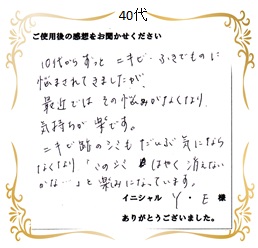 40代
ご使用後の感想をお聞かせください
10代からずっと ニキビ・ふきでものに
悩まされてきましたが、
最近では その悩みがなくなり
気持ちが楽です。
ニキビ跡のシミもだいぶ気になら
なくなり「このシミ はやく消えない
かな…」と楽みになっています。
イニシャル Y・E 様
ありがとうございました。